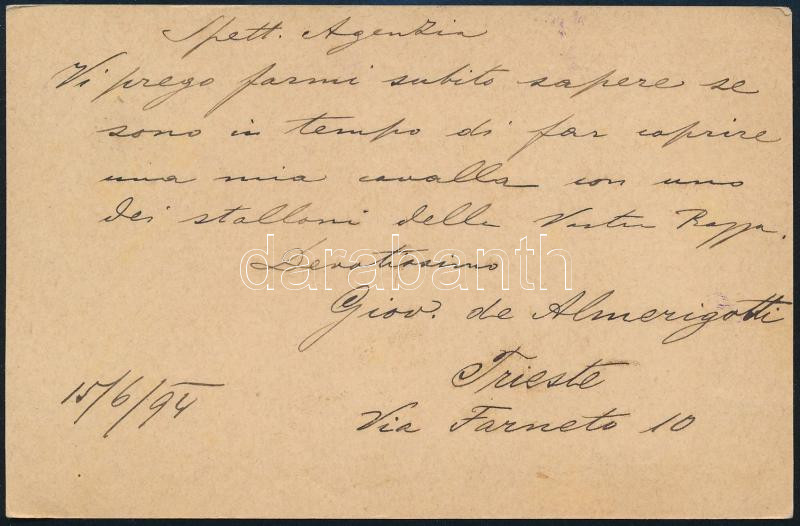 Spett. Agenzia
Vi prego farmi subito sapere se
sono in tempo di far coprire
una mia cavalla con uno
dei stalloni della Vostra Razza.
Devotissimo
darabanth
Giov. de Almerigotti
Trieste
15/6/94
Via Farneto 10